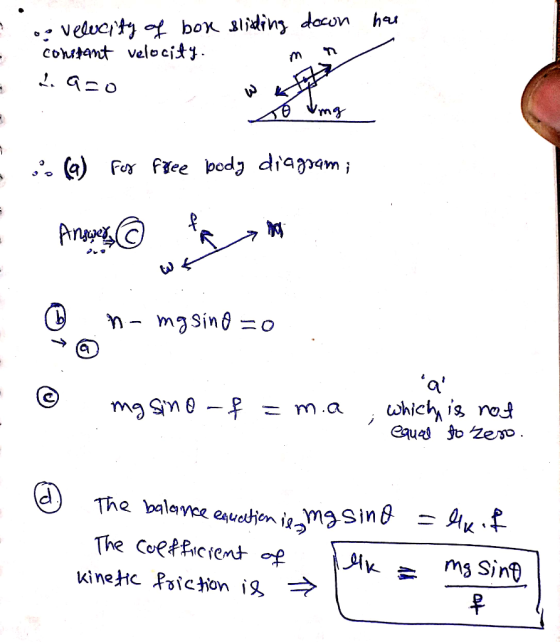 ∵ velocity of box sliding down has
constant velocity.
∴ a=0
m n
w
θ mg
∴ (a) For free body diagram;
Answer, (C)
f
w
(b) n - mg sinθ = 0
→ (a)
(c) mg sinθ - f = m.a , 'a' which is not
equal to zero.
(d) The balance equation is, mg sinθ = μk . f
The coefficient of
kinetic friction is ⇒ μk = mg sinθ / f